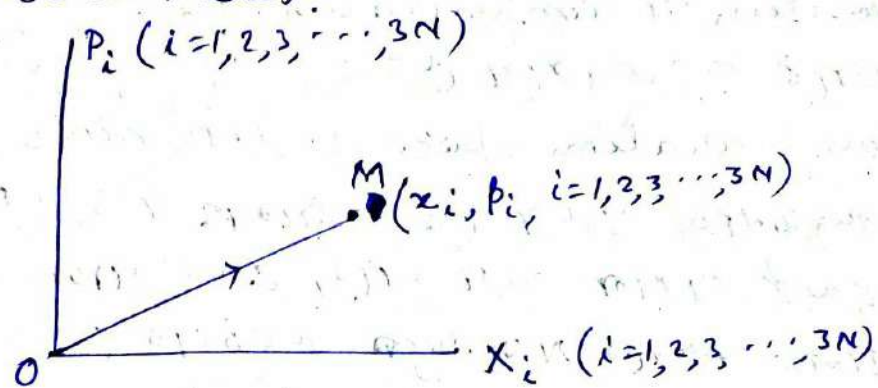 P_i (i=1,2,3, ..., 3N)
M
(x_i, p_i, i=1,2,3, ..., 3N)
O
X_i (i=1,2,3, ..., 3N)